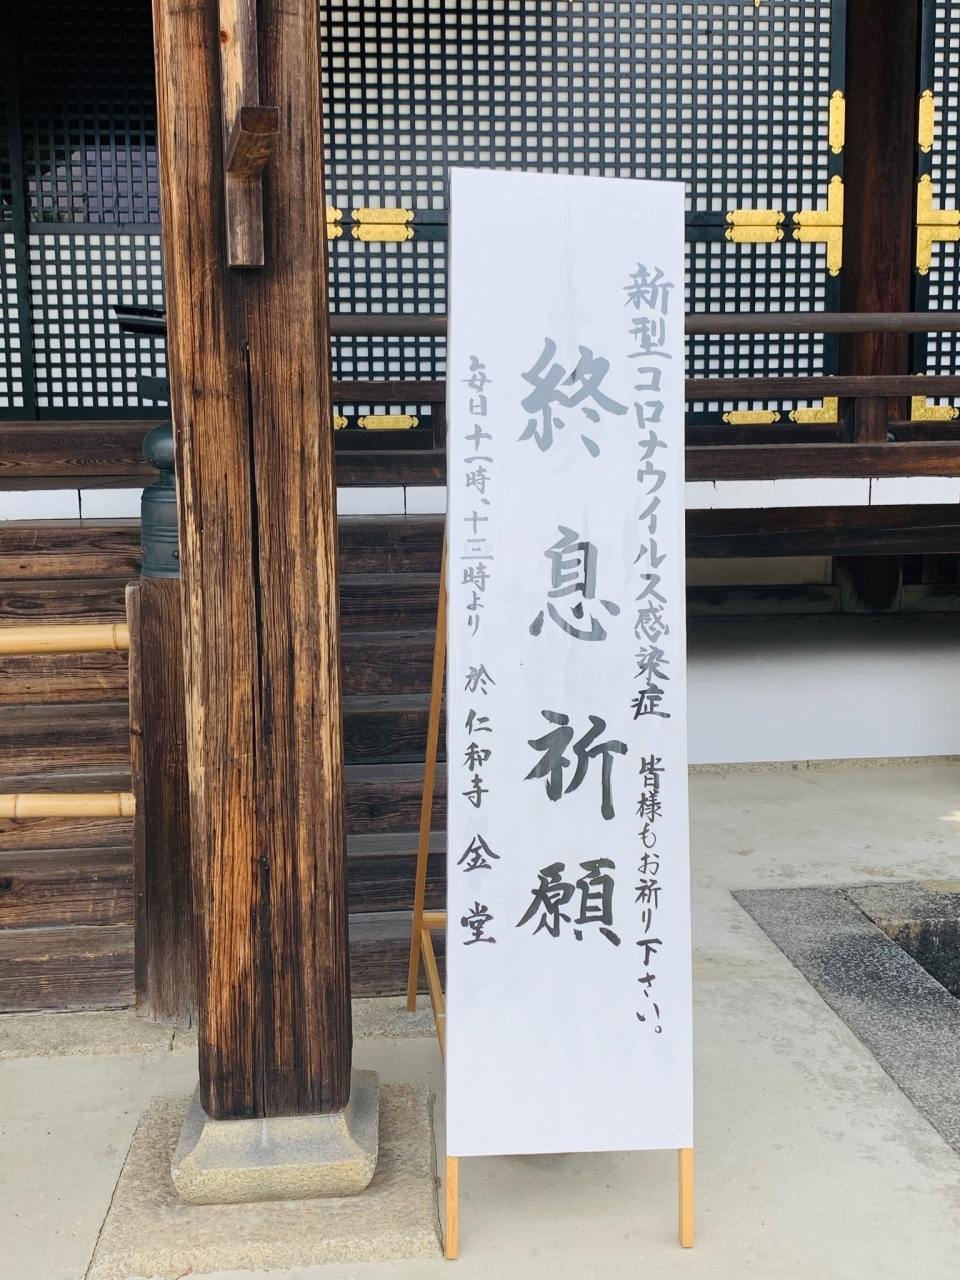 新型コロナウイルス感染症 皆様もお祈り下さい。
終息祈願
毎日十一時、十三時より 於 仁和寺 金堂